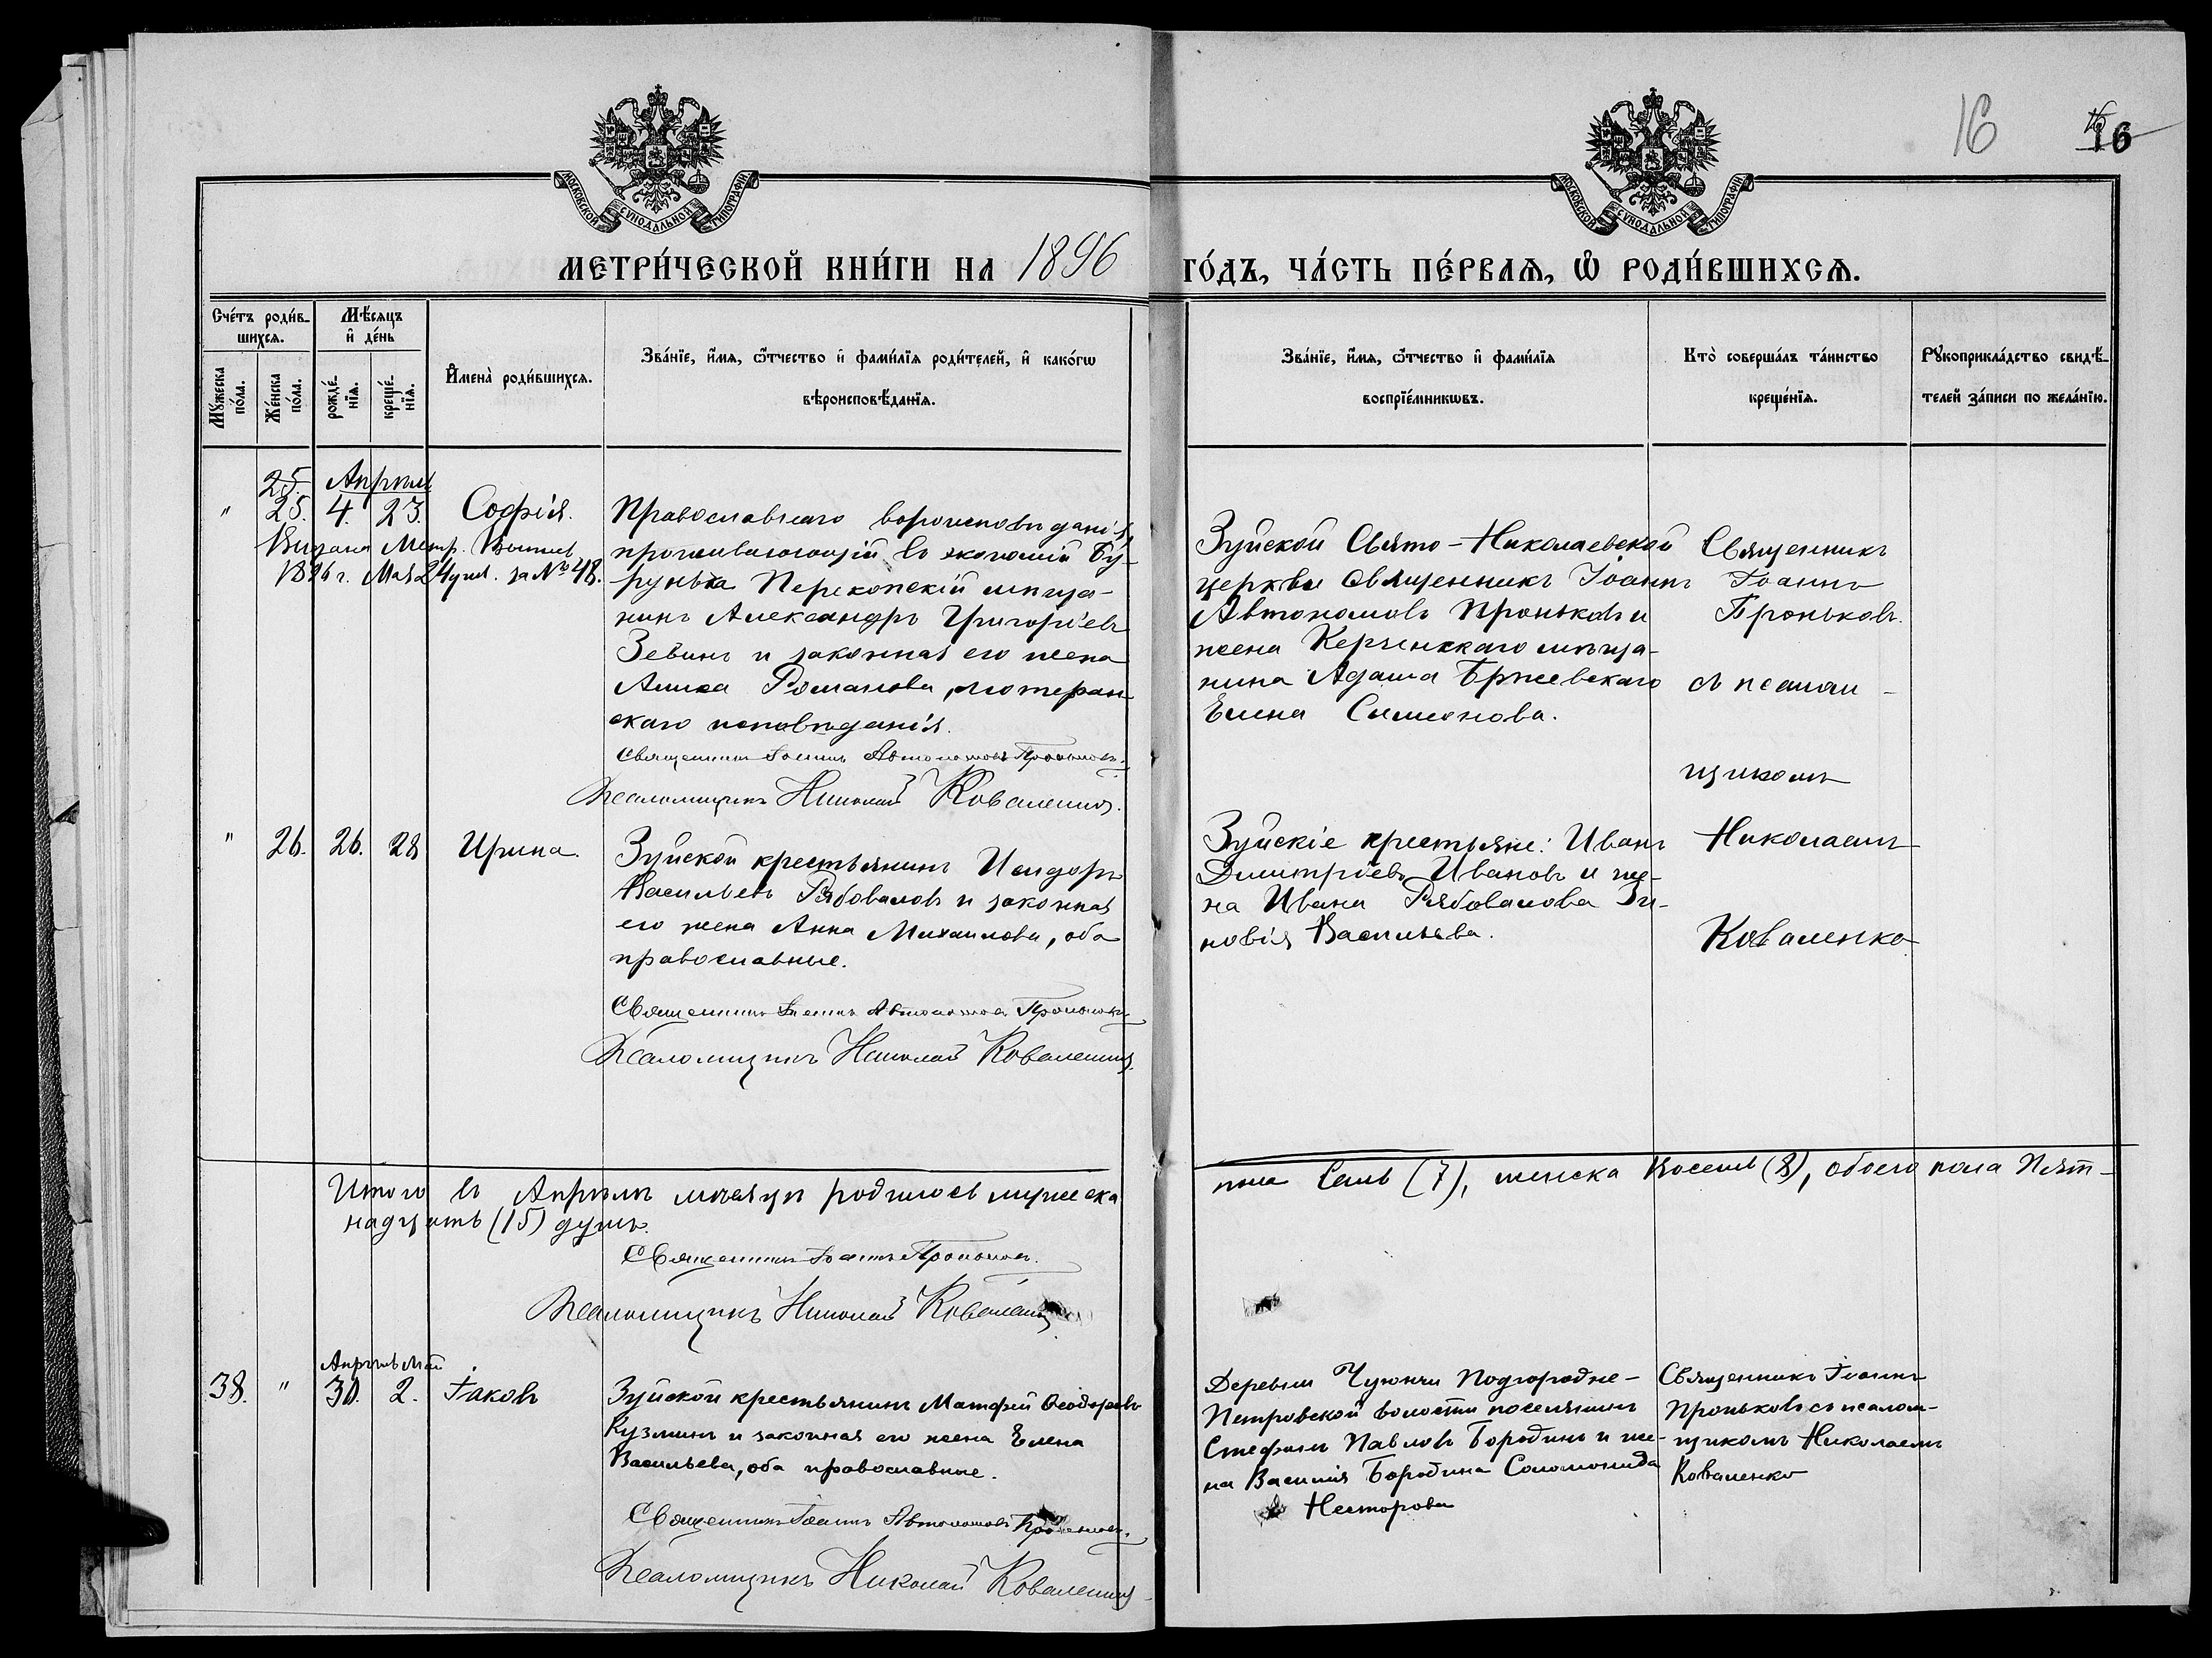 16 16
МОСКОВСКОЙ СѴНОДАЛЬНОЙ ТИПОГРАФІИ
МОСКОВСКОЙ СѴНОДАЛЬНОЙ ТИПОГРАФІИ
МЕТРИ́ЧЕСКОЙ КНИ́ГИ НА 1896 ГО́ДЪ, ЧА́СТЬ ПЕ́РВАѦ, Ѡ҆ РОДИ́ВШИХСѦ.
Сче́тъ роди́в-
шихсѧ.
Мꙋ́жеска
по́ла.
Же́нска
по́ла.
Мѣ́сѧцъ
и҆ де́нь
рожде́-
нїѧ.
креще́-
нїѧ.
И҆мена̀ роди́вшихсѧ.
Зва́нїе, и҆́мѧ, ѻ҆́тчество и҆ фами́лїѧ роди́телей, и҆ како́гѡ
вѣроисповѣ́данїѧ.
Зва́нїе, и҆́мѧ, ѻ҆́тчество и҆ фами́лїѧ
воспрїе́мникѡвъ.
Кто̀ соверша́лъ та́инство
креще́нїѧ.
Рꙋкоприкла́дство свидѣ́-
телей за́писи по жела́нїю.
25. Апрѣль
" 25. 4. 23. Софія.
Выдана Метр. Выпись
1896 г. Мая 24 дня. за № 48.
Православнаго вѣроисповѣданія,
проживающій въ экономіи Бу-
рунька Перекопскій мѣща-
нинъ Александръ Григоріевъ
Зевинъ и законная его жена
Романова, лютеран-
скаго исповѣданія.
Священникъ Іоаннъ Автономовъ Проньковъ.
Псаломщикъ Николай Коваленко.
Зуйской Свято-Николаевской
церкви Священникъ Іоаннъ
Автономовъ Проньковъ и
жена Керченскаго мѣща-
нина Адама Бржевскаго
Елена Симеонова.
Священникъ
Іоаннъ
Проньковъ.
съ псалом-
щикомъ
Николаемъ
Коваленко
" 26. 26. 28 Ирина.
Зуйской крестьянинъ Исидоръ
Васильевъ Рябоваловъ и законная
его жена Анна Михаилова, оба
православные.
Священникъ Іоаннъ Автономовъ Проньковъ
Псаломщикъ Николай Коваленко.
Зуйскіе крестьяне: Иванъ
Димитріевъ Ивановъ и же-
на Ивана Рябовалова Зи-
новія Васильева.
Итого въ Апрѣлѣ мѣсяцѣ родилось мужеска пола Семь (7), женска Восемь (8), обоего пола Пят-
надцать (15) душъ.
Священникъ Іоаннъ Проньковъ.
Псаломщикъ Николай Коваленко
Апрѣль Май
38. " 30. 2. Іаковъ
Зуйской крестьянинъ Матфей Ѳеодоровъ
Кузминъ и законная его жена Елена
Васильева, оба православные.
Священникъ Іоаннъ Автономовъ Проньковъ.
Псаломщикъ Николай Коваленко
Деревни Чуюнчи Подгородне-
Петровской волости поселянинъ
Стефанъ Павловъ Бородинъ и же-
на Василія Бородина Соломонида
Несторова
Священникъ Іоаннъ
Проньковъ съ псалом-
щикомъ Николаемъ
Коваленко